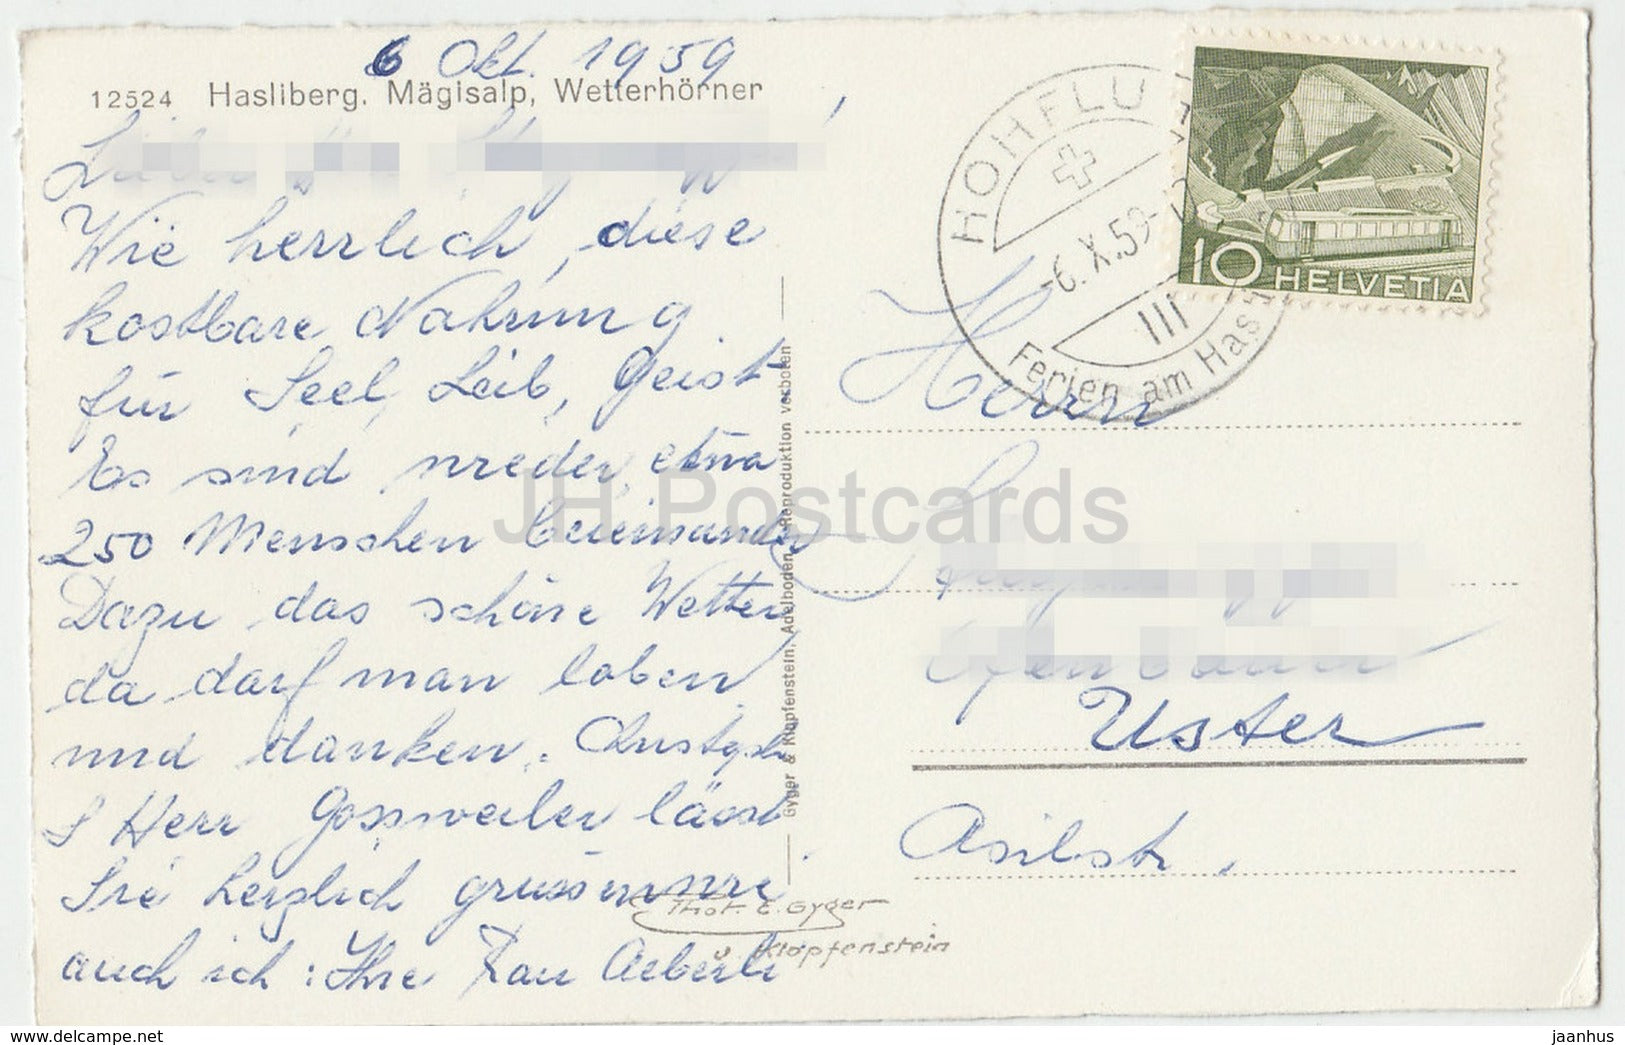 6 Okt. 1959
12524 Hasliberg. Mägisalp, Wetterhörner
Wie herrlich, diese
kostbare Nahrung
für Seel, Leib, Geist
Es sind wieder, etwa
250 Menschen beieinander
Dazu das schöne Wetter,
da darf man loben
und danken.
Herr Gossweiler lässt
Sie herzlich grüssen wie
auch ich: Ihre Frau Aeberli
Gyger & Klopfenstein, Adelboden, Reproduktion verboten
Phot. E. Gyger
u. Klopfenstein
HOHFLUH
-6.X.59-
III
Ferien am Hasli
10 HELVETIA
Herrn
Uster
Asilstr.
JH Postcards
www.delcampe.net
jaanhus